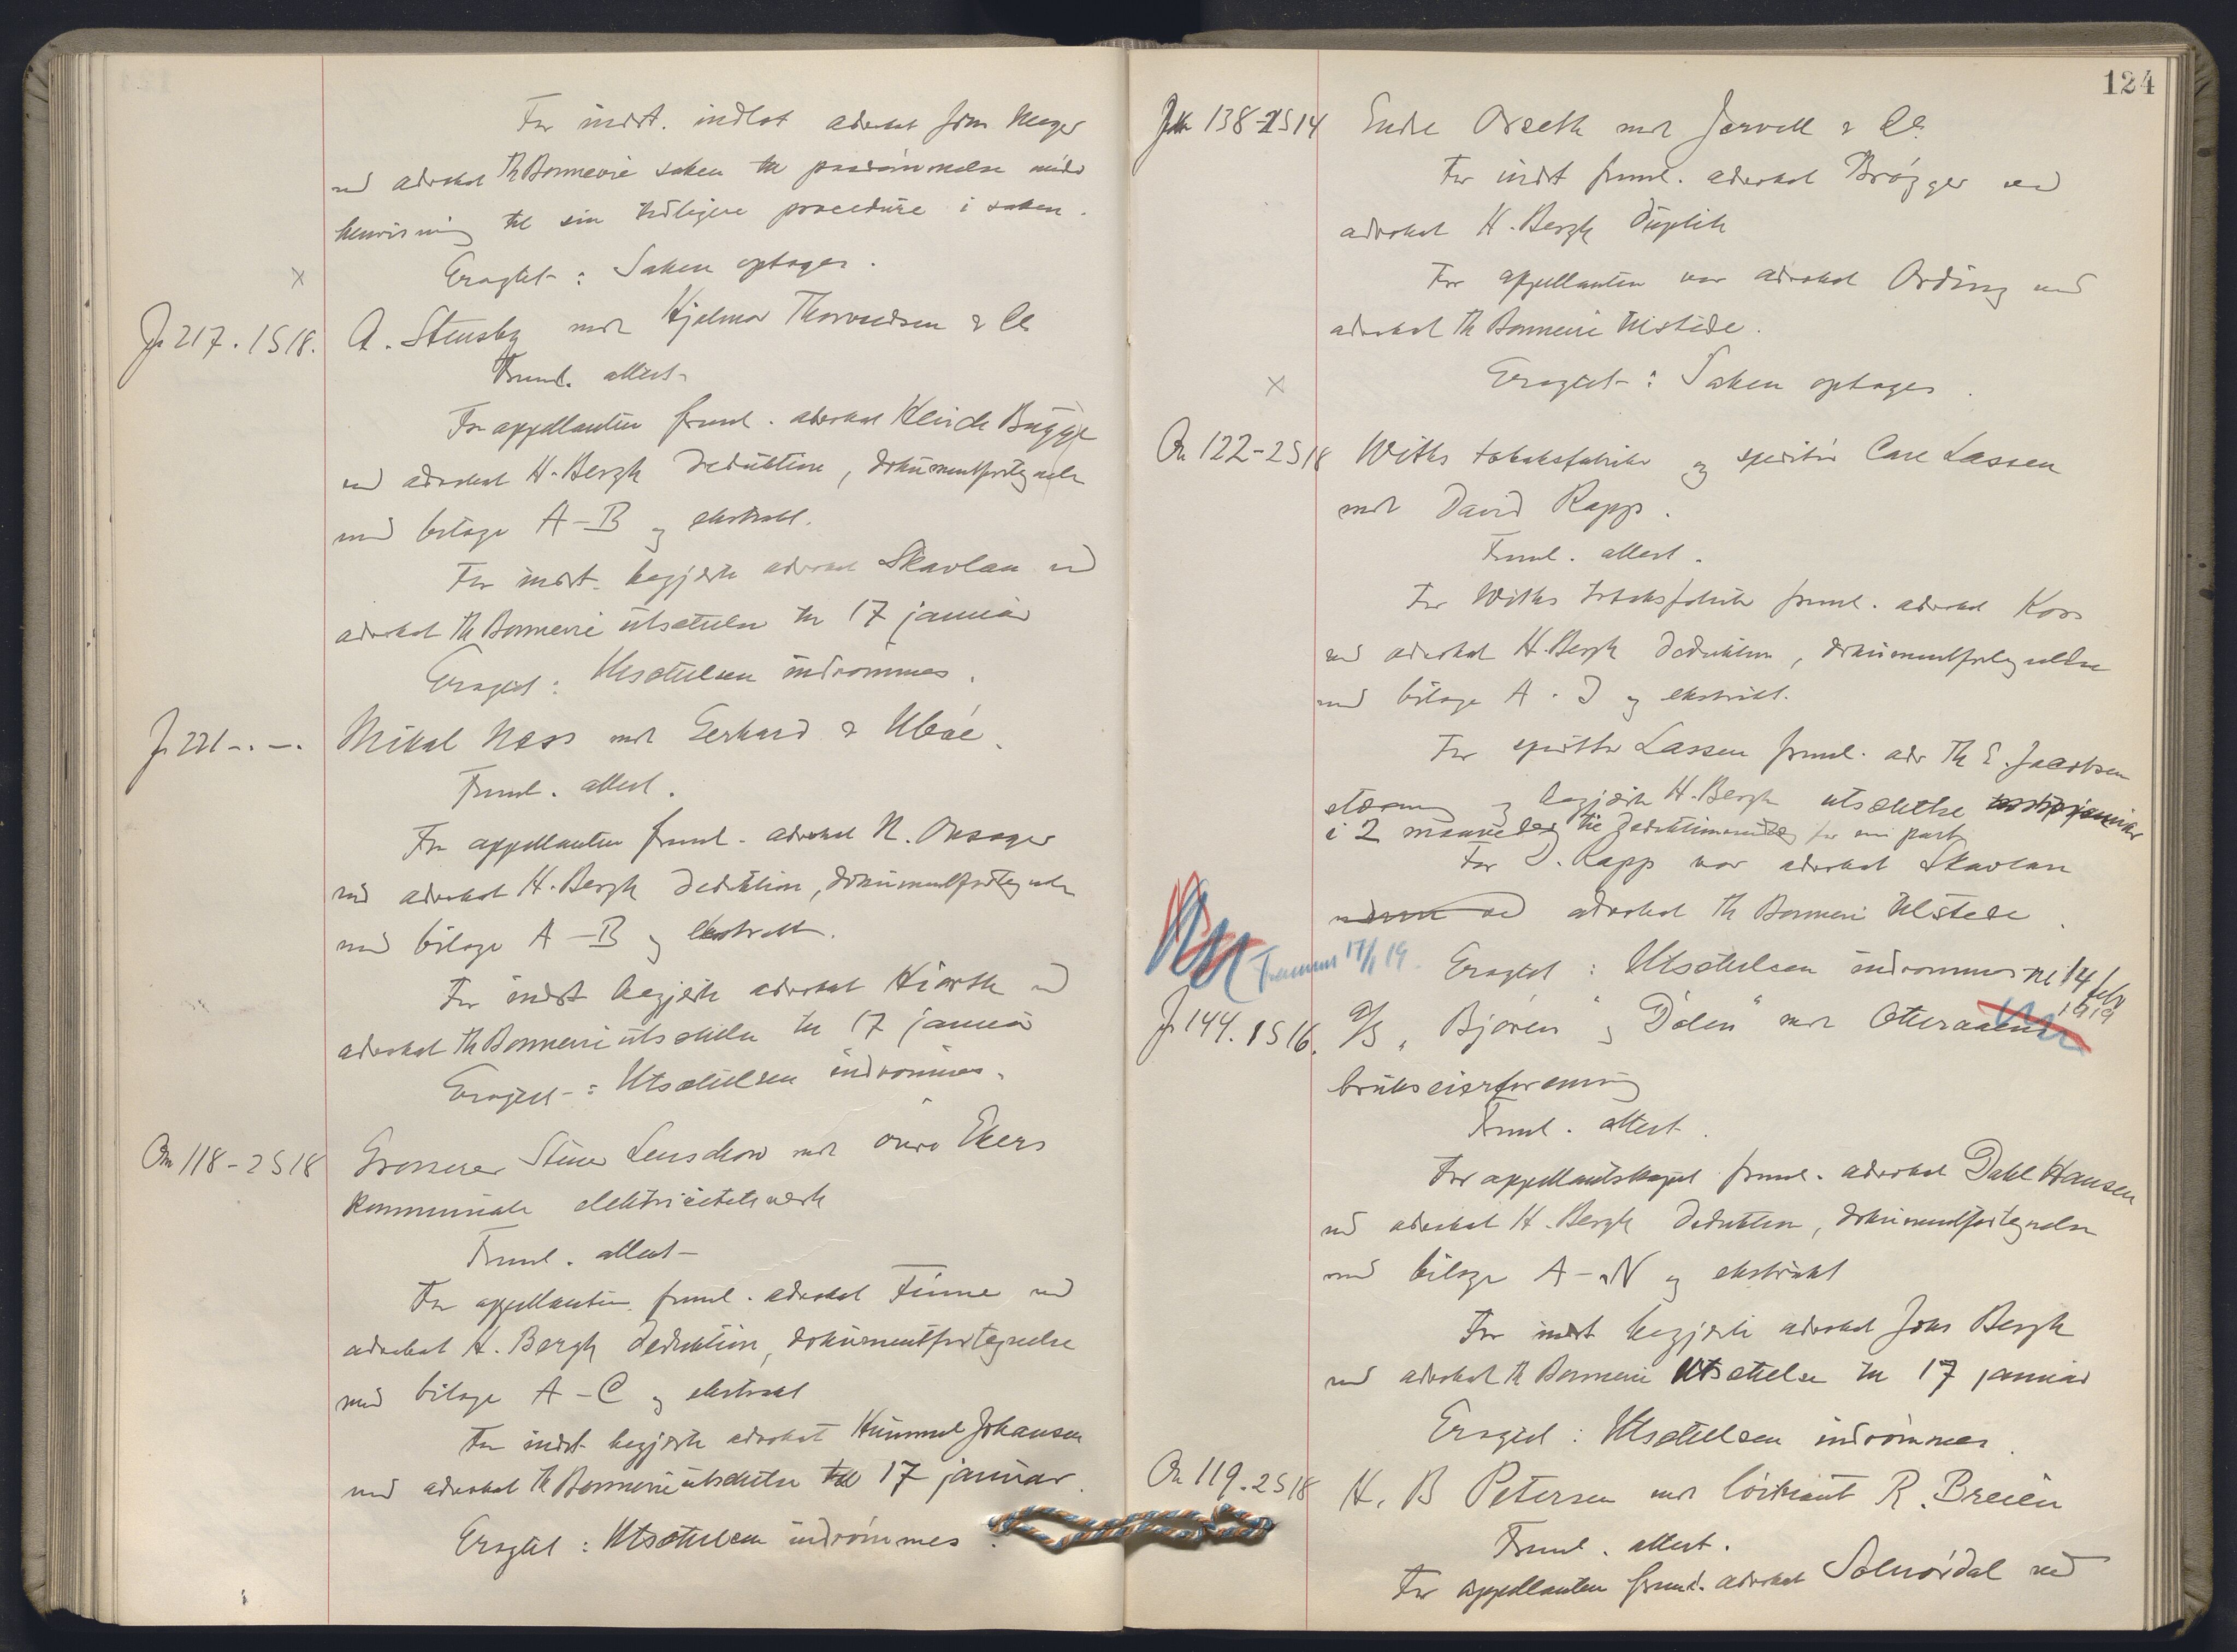 For indst. indlot advokat Jom Meyer
ved advokat Th Bonnevie saken til paadømmelse under
henvisning til sin tidligere procedure i saken.
Eragtet: Saken optages.
x
Jr 217. 1S18. A. Stensby mot Hjalmar Thorvudsen & Co
Freml. attest
For appellanten freml. advokat Henrik Bugge
ved advokat H. Bergh deduktion, dokumentfortegnelse
med bilage A–B og ekstrakt.
For indst. begjærte advokat Skavlan ved
advokat Th Bonnevie utsættelse til 17 januar
Eragtet: Utsættelsen indrømmes.
Jr 221 –.–. Mikal Næss mot Gerhard & Uboe.
Freml. attest.
For appellanten freml. advokat N. Onsager
ved advokat H. Bergh deduktion, dokumentfortegnelse
med bilage A–B og ekstrakt.
For indst begjærte advokat Hiorth ved
advokat Th Bonnevie utsættelse til 17 januar
Eragtet: Utsættelsen indrømmes.
On 118–2S18 Grosserer Stener Lenschow mot øvre Ekers
kommunale elektricitetsverk
Freml. attest
For appellanten freml. advokat Finne ved
advokat H. Bergh deduktion, dokumentfortegnelse
med bilage A–C og ekstrakt
For indst begjærte advokat Hummel Johansen
ved advokat Th Bonnevie utsættelse til 17 januar.
Eragtet: Utsættelsen indrømmes.
124
138–1S14 Endre Orseth mot Jervell & Co.
For indst freml. advokat Brøgger ved
advokat H. Bergh duplik
For appellanten var advokat Ording ved
advokat Th Bonnevie tilstede.
Eragtet: Saken optages.
x
On 122–2S18 Withs tobaksfabrik og speditør Carl Lassen
mot David Rapp.
Freml. attest.
For Withs tobaksfabrik freml. advokat Koss
ved advokat H. Bergh deduktion, dokumentfortegnelse
med bilage A–I og ekstrakt.
For speditør Lassen freml. adv Th E. Jacobsen
stevning og begjærte H. Bergh utsættelse
i 2 maaneder til deduktionsindlæg for sin part
For D. Rapp var advokat Skavlan
ved advokat Th Bonnevie tilstede.
Fremmes 17/1 19.
Eragtet: Utsættelsen indrømmes til 14 febr
1919
Jr 144. 1S16. A/S "Bjoren og Dølen" mot Otteraaens
brukseierforening
Freml. attest.
For appellantskapet freml. advokat Dahl Hansen
ved advokat H. Bergh deduktion, dokumentfortegnelse
med bilage A–N og ekstrakt
For indst begjærte advokat Johs Bergh
ved advokat Th Bonnevie utsættelse til 17 januar
Eragtet: Utsættelsen indrømmes.
On 119. 2S18 H. B Petersen mot løitnant R. Breien
Freml. attest.
For appellanten freml. advokat Solnørdal ved